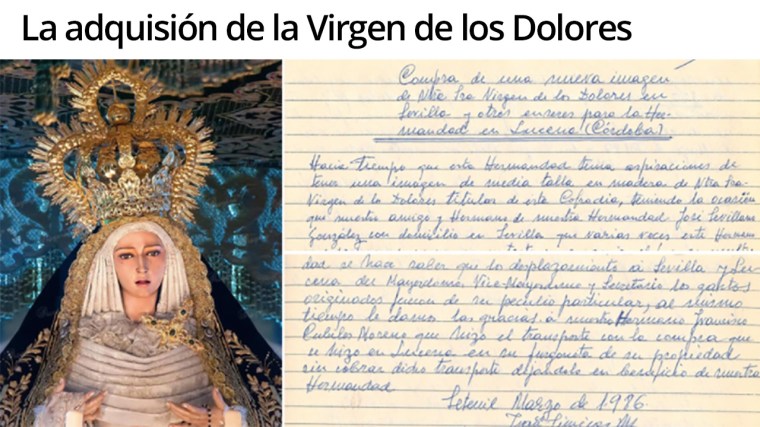 La adquisión de la Virgen de los Dolores
Compra de una nueva imagen
de Ntra Sra Virgen de los Dolores en
Sevilla y otros enseres para la Her-
mandad en Lucena (Córdoba)
Hacia Tiempo que esta Hermandad tenia aspiraciones de
tener una imagen de media talla en madera de Ntra Sra-
Virgen de lo Dolores titular de esta Cofradia, teniendo la ocasión
que nuestro amigo y Hermano de nuestra Hermandad José Sevillano
González con domicilio en Sevilla que varias veces este Herman
dad se hace saber que lo desplazamiento a Sevilla y Lu-
cena del Mayordomo, Vice-Mayordomo y Secretario los gastos
originados fueron de su peculio particular, al mismo
tiempo le damos las gracias a nuestro Hermano Francisco
Cubiles Moreno que hizo el transporte con la compra que
se hizo en Lucena en su furgoneta de su propiedad
sin cobrar dicho transporte dejandolo en beneficio de nuestra
Hermandad
Setenil Marzo de 1.986